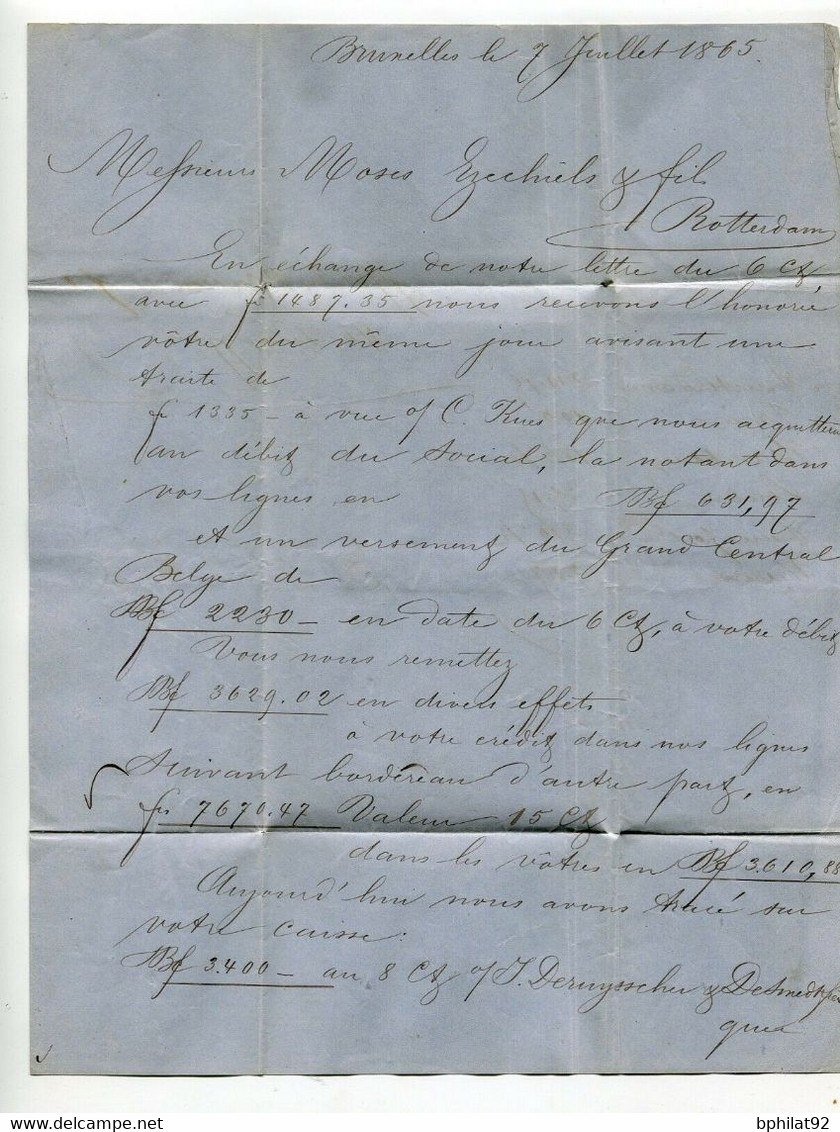 Bruxelles le 7 Juillet 1865.
Messieurs Moses Ezechiels & fils
Rotterdam
En échange de notre lettre du 6 Ct
avec fs 1487.35 nous recevons l'honorée
vôtre du même jour avisant une
traite de
fs 1335 - à vue o/ C. que nous acquitterons
au débit du Social, la notant dans
vos lignes en Bf 631,97
et un versement du Grand Central
Belge de
Bf 2230 - en date du 6 Ct, à votre débit
Vous nous remettez
Bf 3629.02 en divers effets
à votre crédit dans nos lignes
suivant bordereau d'autre part, en
fs 7670.47 Valeur 15 Ct
dans les vôtres en Bf 3.610,88
Aujourd'hui nous avons tracé sur
votre caisse:
Bf 3.400 - au 8 Ct o/ J. Deruysscher & Desmedt
que
bphilat92